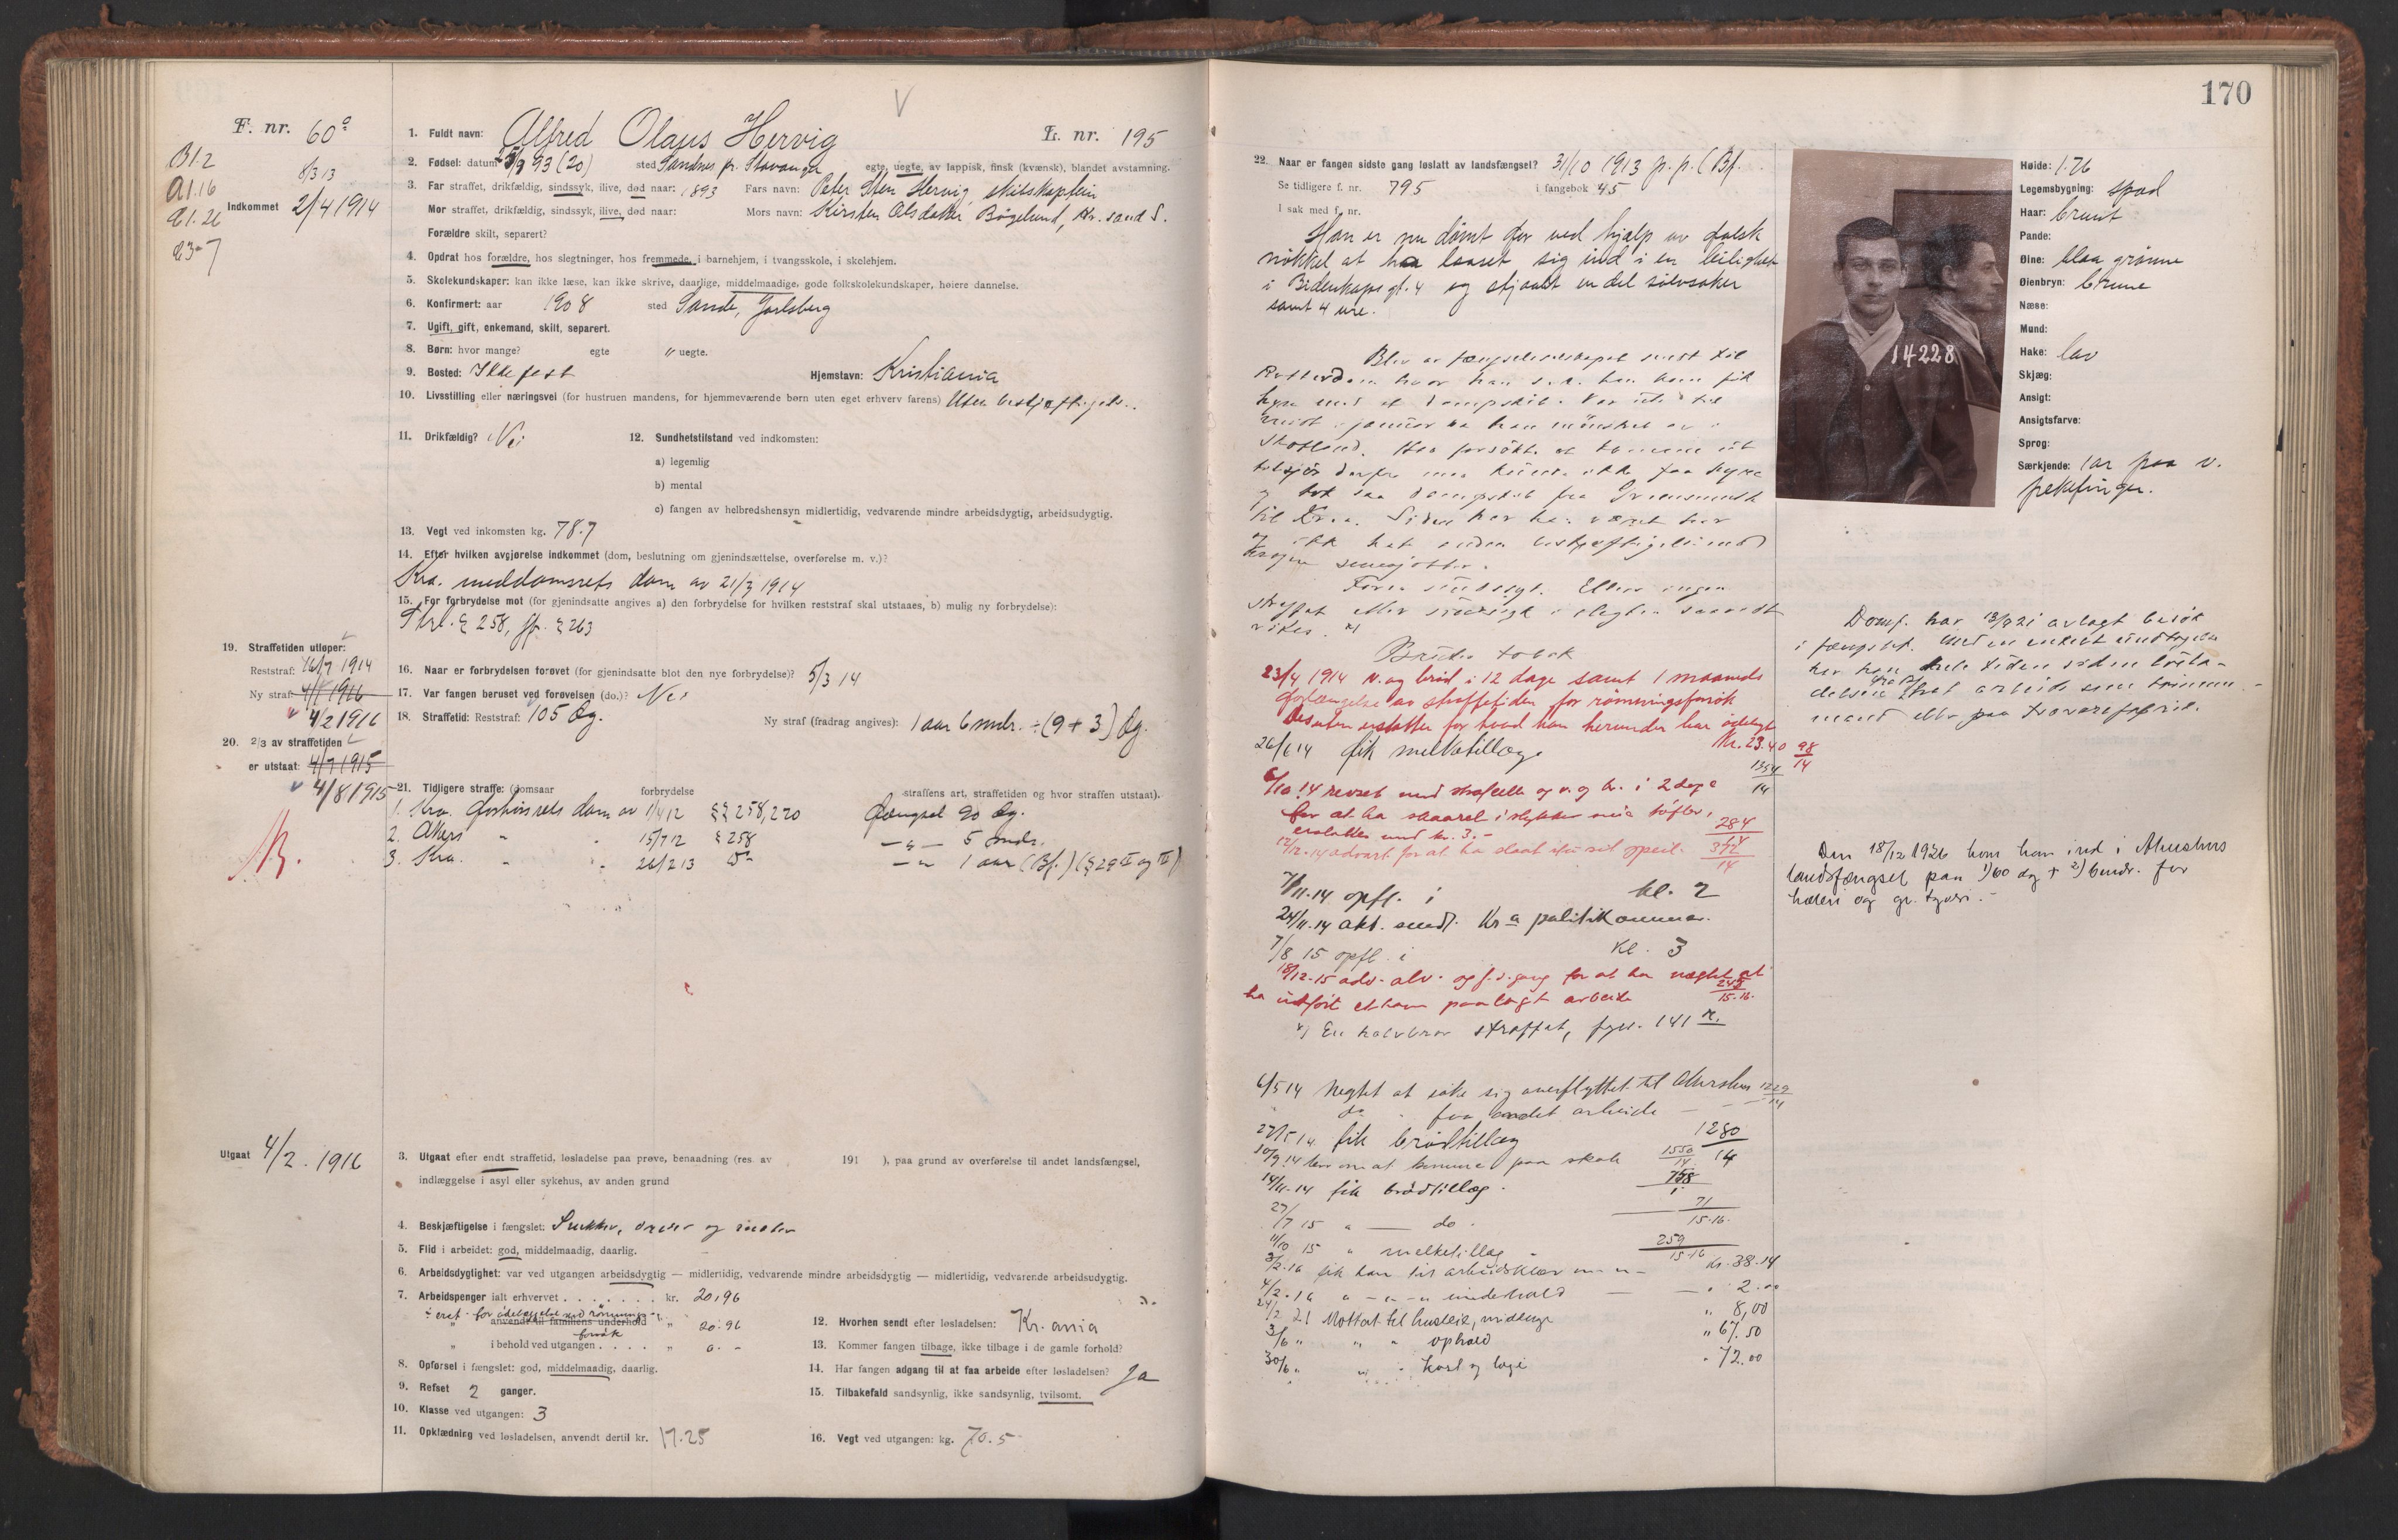 F. nr. 60a
Bl. 2
a1.16
8/3 13
a1.26
Indkommet 2/4 1914
1. Fuldt navn: Alfred Olaus Hervig
L. nr. 195
2. Fødsel: datum 93 (20) sted Sandnes pr. Stavanger egte, uegte, av lappisk, finsk (kvænsk), blandet avstamning.
3. Far straffet, drikfældig, sindssyk, ilive, død naar: 1893 Fars navn: Peter Sten Hervig skibskaptein
Mor straffet, drikfældig, sindssyk, ilive, død naar: Mors navn: Kirsten Olsdatter Bøgelund, Kr. sand S.
Forældre skilt, separert?
4. Opdrat hos forældre, hos slegtninger, hos fremmede, i barnehjem, i tvangsskole, i skolehjem.
5. Skolekundskaper: kan ikke læse, kan ikke skrive, daarlige, middelmaadige, gode folkskolekundskaper, høiere dannelse.
6. Konfirmert: aar 1908 sted Sande, Jarlsberg
7. Ugift, gift, enkemand, skilt, separert.
8. Børn: hvor mange? egte " uegte.
9. Bosted: Ikke fast Hjemstavn: Kristiania
10. Livsstilling eller næringsvei (for hustruen mandens, for hjemmeværende børn uten eget erhverv farens) Uten beskjæftigelse.
11. Drikfældig? Nei 12. Sundhetstilstand ved indkomsten:
a) legemlig
b) mental
c) fangen av helbredshensyn midlertidig, vedvarende mindre arbeidsdygtig, arbeidsudygtig.
13. Vegt ved inkomsten kg. 78.7
14. Efter hvilken avgjørelse indkommet (dom, beslutning om gjenindsættelse, overførelse m. v.)?
Kra. meddomsrets dom av 21/3 1914
15. For forbrydelse mot (for gjenindsatte angives a) den forbrydelse for hvilken reststraf skal utstaaes, b) mulig ny forbrydelse):
Strl. § 258, jfr. § 263
19. Straffetiden utløper:
Reststraf: 16/7 1914
16. Naar er forbrydelsen forøvet (for gjenindsatte blot den nye forbrydelse)? 5/3 14
Ny straf: 4/1 1916
17. Var fangen beruset ved forøvelsen (do.)? Nei
4/2 1916
18. Straffetid: Reststraf: 105 dg. Ny straf (fradrag angives): 1 aar 6 mndr. ÷ (9+3) dg.
20. 2/3 av straffetiden
er utstaat: 4/7 1915
4/8 1915
21. Tidligere straffe: (domsaar forbrydelse straffens art, straffetiden og hvor straffen utstaat).
1. Kra. forhørsrets dom av 1/4 12 §§ 258, 270 Fængsel 90 dg.
2. Akers " " 15/7 12 § 258 — " — 5 mndr.
3. Kra. " " 26/2 13 — " — 1 aar (Bf.) (§ 29 II og III)
Utgaat 4/2 . 1916
3. Utgaat efter endt straffetid, løsladelse paa prøve, benaadning (res. av 191 ), paa grund av overførelse til andet landsfængsel,
indlæggelse i asyl eller sykehus, av anden grund
4. Beskjæftigelse i fængslet: Snekker, dreier og
5. Flid i arbeidet: god, middelmaadig, daarlig.
6. Arbeidsdygtighet: var ved utgangen arbeidsdygtig — midlertidig, vedvarende mindre arbeidsdygtig — midlertidig, vedvarende arbeidsudygtig.
7. Arbeidspenger ialt erhvervet . . . . . . . kr. 20,96
÷ erst. for ødelæggelse ved rømnings-
" anvendt til familiens underhold " 20.96
forsøk
" i behold ved utgangen . . . . " 0. –
8. Opførsel i fængslet: god, middelmaadig, daarlig.
9. Refset 2 ganger.
10. Klasse ved utgangen: 3
11. Opklædning ved løsladelsen, anvendt dertil kr. 17.25
12. Hvorhen sendt efter løsladelsen: Kr.ania
13. Kommer fangen tilbage, ikke tilbage i de gamle forhold?
14. Har fangen adgang til at faa arbeide efter løsladelsen? Ja
15. Tilbakefald sandsynlig, ikke sandsynlig, tvilsomt.
16. Vegt ved utgangen: kg. 70.5
170
22. Naar er fangen sidste gang løslatt av landsfængsel? 31/10 1913 p. p. (Bf.
Se tidligere f. nr. 795 i fangebok 45
I sak med f. nr.
Han er nu dømt for ved hjælp av falsk
nøkkel at ha laaset sig ind i en leilighet
i Bidenkapsgt. 4 og stjaalet en del sølvsaker
samt 4 ure.
Blev av fængselsselskapet sendt til
Rotterdam hvor han
hyre med et dampskib. Var ute til
midt i januar da han mønstret av i
Skotland. Han forsøkte at komme ut
tilsjøs derfra men kunde ikke faa hyre
og tok saa dampskib fra Grimsby
til Kr.a. Siden har han været her
og ikke hat anden beskjæftigelse end
Ellers ingen
straffet eller sindssyk i slegten saavidt
vites. x)
Bruke tobak
23/4 1914 v. og brød i 12 dage samt 1 maaneds
forlængelse av straffetiden for rømningsforsøk
Desuten erstatte for hvad han herunder har ødelagt
Kr. 23.40 98/14
26/6 14 fik melketillæg 1354/14
6/10 14 revset med strafcelle og v. og br. i 2 dage
for at ha skaaret i stykker sine tøfler,
erstattes med kr. 3.– 284
12/12.14 advart for at ha slaat itu sit speil. 392/14
7/11.14 opfl. i kl. 2
24/11.14 akt. sendt Kra politikammer.
7/8 15 opfl. i kl. 3
18/12.15 adv. alv. og f. s. gang for at ha negtet at
ha utført et ham paalagt arbeide 248/15.16.
x) En halvbror straffet, f. 141 n.
6/5 14 Negtet at søke sig overflyttet til Akershus 1229/14
" do " faa andet arbeide — " —
27/5 14 fik brødtillæg 1280/14
10/9 14 om at komme paa skole 1550/14
14/11.14 fik brødtillæg. 758
27/7 15 " — do. 71/15.16.
11/10 15 " melketillæg 259/15.16
3/2.16 fik han til arbeidsklær m. m. kr. 38.14
4/2.16 " – " – " underhold — " 2.00
24/2 21 Mottat til husleie, midlage " 8,00
3/6 " " " ophold " 67.50
30/6 " " " kost og logi " 72.00
14228
Høide: 1.76
Legemsbygning: spæd
Haar: brunt
Pande:
Øine: blaa grønne
Øienbryn: brune
Næse:
Mund:
Hake: lav
Skjæg:
Ansigt:
Ansigtsfarve:
Sprog:
Særkjende: 1 ar paa v.
pekefinger.
Domf. har 13/9 21 avlagt besøk
i fængslet. Med en enkelt undtagelse
har han hele tiden siden løsla-
delsen hat arbeide som tømmer-
mand eller paa
Den 18/12 1926 kom han ind i Akershus
landsfængsel paa 1) 60 dg + 2) 6 mdr. for
heleri og gr. tyveri.